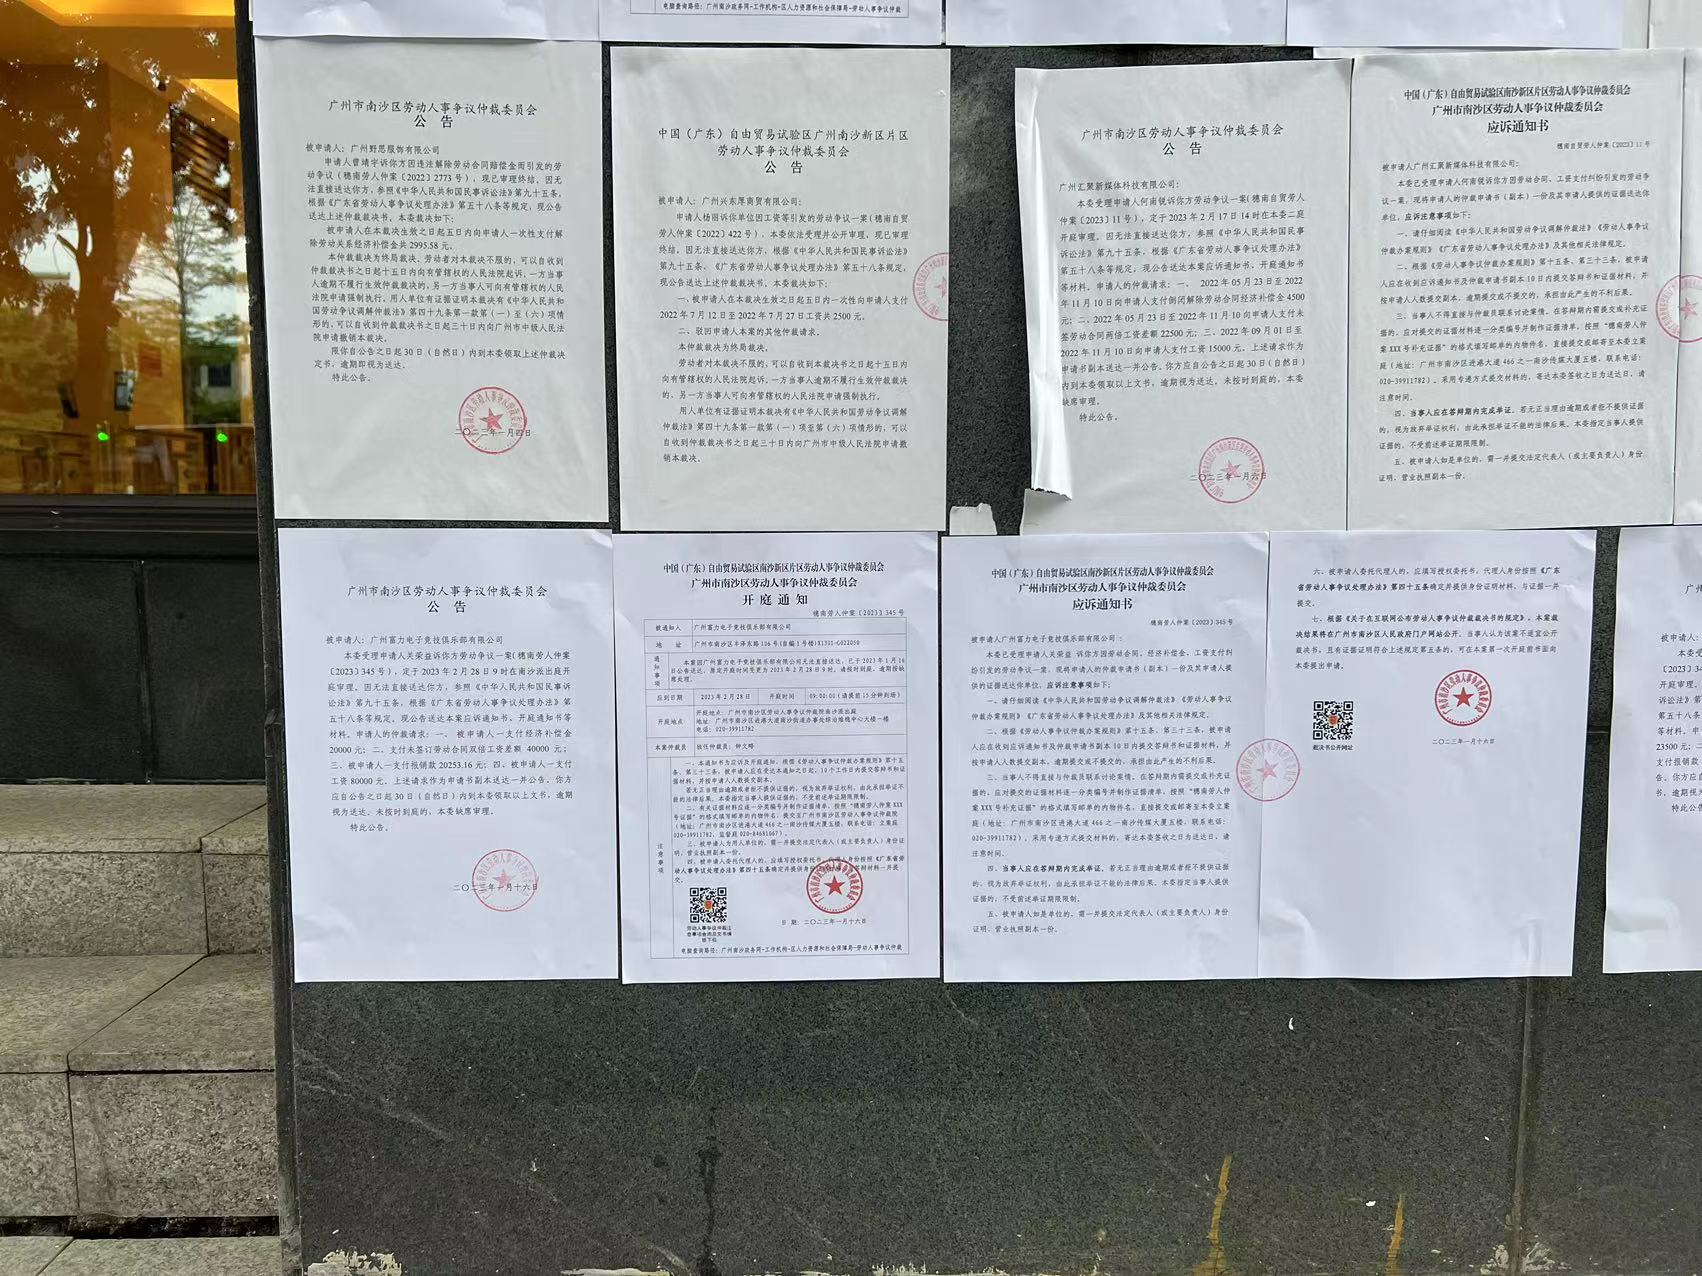 电脑查询路径：广州南沙政务网-工作机构-区人力资源和社会保障局-劳动人事争议仲裁
广州市南沙区劳动人事争议仲裁委员会
公 告
被申请人：广州野思服饰有限公司
申请人曾靖宇诉你方因违法解除劳动合同赔偿金而引发的劳
动争议（穗南劳人仲案〔2022〕2773 号），现已审理终结。因无
法直接送达你方，参照《中华人民共和国民事诉讼法》第九十五条，
根据《广东省劳动人事争议处理办法》第五十八条等规定，现公告
送达上述仲裁裁决书。本委裁决如下：
被申请人在本裁决生效之日起五日内向申请人一次性支付解
除劳动关系经济补偿金共 2995.58 元。
本仲裁裁决为终局裁决。劳动者对本裁决不服的，可以自收到
仲裁裁决书之日起十五日内向有管辖权的人民法院起诉。一方当事
人逾期不履行生效仲裁裁决的，另一方当事人可向有管辖权的人民
法院申请强制执行。用人单位有证据证明本裁决有《中华人民共和
国劳动争议调解仲裁法》第四十九条第一款第（一）至（六）项情
形的，可以自收到仲裁裁决书之日起三十日内向广州市中级人民法
院申请撤销本裁决。
限你自公告之日起 30 日（自然日）内到本委领取上述仲裁裁决
定书，逾期即视为送达。
特此公告。
二〇二三年一月四日
中国（广东）自由贸易试验区广州南沙新区片区
劳动人事争议仲裁委员会
公 告
被申请人：广州兴东厚商贸有限公司：
申请人杨丽诉你单位因工资等引发的劳动争议一案（穗南自贸
劳人仲案〔2022〕422 号），本委依法受理并公开审理，现已审理
终结。因无法直接送达你方，根据《中华人民共和国民事诉讼法》
第九十五条、《广东省劳动人事争议处理办法》第五十八条规定，
现公告送达上述仲裁裁决书。本委裁决如下：
一、被申请人在本裁决生效之日起五日内一次性向申请人支付
2022 年 7 月 12 日至 2022 年 7 月 27 日工资共 2500 元。
二、驳回申请人本案的其他仲裁请求。
本仲裁裁决为终局裁决。
劳动者对本裁决不服的，可以自收到本裁决书之日起十五日内
向有管辖权的人民法院起诉。一方当事人逾期不履行生效仲裁裁决
的，另一方当事人可向有管辖权的人民法院申请强制执行。
用人单位有证据证明本裁决有《中华人民共和国劳动争议调解
仲裁法》第四十九条第一款第（一）项至第（六）项情形的，可以
自收到仲裁裁决书之日起三十日内向广州市中级人民法院申请撤
销本裁决。
广州市南沙区劳动人事争议仲裁委员会
公 告
广州汇聚新媒体科技有限公司：
本委受理申请人何南锐诉你方劳动争议一案（穗南自贸劳人
仲案〔2023〕11 号），定于 2023 年 2 月 17 日 14 时在本委二庭
开庭审理。因无法直接送达你方，参照《中华人民共和国民事
诉讼法》第九十五条，根据《广东省劳动人事争议处理办法》第
五十八条等规定，现公告送达本案应诉通知书、开庭通知书
等材料。申请人的仲裁请求：一、2022 年 05 月 23 日至 2022
年 11 月 10 日向申请人支付倒闭解除劳动合同经济补偿金 4500
元；二、2022 年 05 月 23 日至 2022 年 11 月 10 日向申请人支付未
签劳动合同两倍工资差额 22500 元；三、2022 年 09 月 01 日至
2022 年 11 月 10 日向申请人支付工资 15000 元。上述请求作为申
请书副本送达一并公告。你方应自公告之日起 30 日（自然日）
内到本委领取以上文书，逾期视为送达。未按时到庭的，本委
缺席审理。
特此公告。
二〇二三年一月六日
中国（广东）自由贸易试验区南沙新区片区劳动人事争议仲裁委员会
广州市南沙区劳动人事争议仲裁委员会
应诉通知书
穗南自贸劳人仲案〔2023〕11 号
被申请人广州汇聚新媒体科技有限公司：
本委已受理申请人何南锐诉你方因劳动合同、工资支付纠纷引发的劳动争
议一案，现将申请人的仲裁申请书（副本）一份及其申请人提供的证据送达你
单位，应诉注意事项如下：
一、请仔细阅读《中华人民共和国劳动争议调解仲裁法》《劳动人事争议
仲裁办案规则》《广东省劳动人事争议处理办法》及其他相关法律规定。
二、根据《劳动人事争议仲裁办案规则》第十五条、第三十三条，被申请
人应在收到应诉通知书及仲裁申请书副本 10 日内提交答辩书和证据材料，并
按申请人人数提交副本。逾期提交或不提交的，承担由此产生的不利后果。
三、当事人不得直接与仲裁员联系讨论案情。在答辩期内需提交或补充证
据的，应对提交的证据材料逐一分类编号并制作证据清单，按照“穗南劳人仲
案 XXX 号补充证据”的格式填写邮单的内物件名，直接提交或邮寄至本委立案
庭（地址：广州市南沙区进港大道 466 之一南沙传媒大厦五楼，联系电话：
020-39911782）。采用专递方式提交材料的，寄达本委签收之日为送达日，请
注意时间。
四、当事人应在答辩期内完成举证。若无正当理由逾期或者拒不提供证据
的，视为放弃举证权利，由此承担举证不能的法律后果。本委指定当事人提供
证据的，不受前述举证期限限制。
五、被申请人如是单位的，需一并提交法定代表人（或主要负责人）身份
证明、营业执照副本一份。
广州市南沙区劳动人事争议仲裁委员会
公 告
被申请人：广州富力电子竞技俱乐部有限公司
本委受理申请人关荣益诉你方劳动争议一案（穗南劳人仲案
〔2023〕345 号），定于 2023 年 2 月 28 日 9 时在南沙派出庭开
庭审理。因无法直接送达你方，参照《中华人民共和国民事诉
讼法》第九十五条，根据《广东省劳动人事争议处理办法》第
五十八条等规定，现公告送达本案应诉通知书、开庭通知书等
材料。申请人的仲裁请求：一、被申请人一支付经济补偿金
20000 元；二、支付未签订劳动合同双倍工资差额 40000 元；
三、被申请人一支付报销款 20253.16 元；四、被申请人一支付
工资 80000 元。上述请求作为申请书副本送达一并公告。你方
应自公告之日起 30 日（自然日）内到本委领取以上文书，逾期
视为送达。未按时到庭的，本委缺席审理。
特此公告。
二〇二三年一月十六日
中国（广东）自由贸易试验区南沙新区片区劳动人事争议仲裁委员会
广州市南沙区劳动人事争议仲裁委员会
开 庭 通 知
穗南劳人仲案〔2023〕345 号
被通知人 广州富力电子竞技俱乐部有限公司
地 址 广州市南沙区丰泽东路 106 号(自编 1 号楼)X1301-G022050
通知事项 本案因广州富力电子竞技俱乐部有限公司无法直接送达，已于 2023 年 1 月 16
日公告送达，原定开庭时间变更为 2023 年 2 月 28 日 9 时，请按时到庭。逾期按缺
席处理。
应到日期 2023 年 2 月 28 日 开庭时间 09:00:00（请提前 15 分钟到场）
开庭地点 开庭地点：广州市南沙区劳动人事争议仲裁院南沙派出庭
地址：广州市南沙区进港大道南沙街道办事处综治维稳中心大楼一楼
电话：020-39911782
本案仲裁员 独任仲裁员：钟文略
注意事项 一、本通知书为应诉及开庭通知，根据《劳动人事争议仲裁办案规则》第十五
条、第三十三条，被申请人应在受达本通知之日起，10 个工作日内提交答辩书和证
据材料，并按申请人人数提交副本。
若无正当理由逾期或者拒不提供证据的，视为放弃举证权利，由此承担举证不
能的法律后果。本委指定当事人提供证据的，不受前述举证期限限制。
二、有关证据材料应逐一分类编号并制作证据清单，按照“穗南劳人仲案 XXX
号证据”的格式填写邮单的内物件名，提交至广州市南沙区劳动人事争议仲裁院
（地址：广州市南沙区进港大道 466 之一南沙传媒大厦五楼，联系电话：立案庭
020-39911782，监督庭 020-84681067）。
三、被申请人为用人单位的，需一并提交法定代表人（或主要负责人）身份证
明、营业执照副本一份。
四、被申请人委托代理人的，应填写授权委托书，代理人身份按照《广东省劳
动人事争议处理办法》第四十五条确定并提供身份证明材料，与证据材料一并提
交。
劳动人事争议仲裁注
意事项查询及文书模
板下载
日 期：二〇二三年一月十六日
电脑查询路径：广州南沙政务网-工作机构-区人力资源和社会保障局-劳动人事争议仲裁
中国（广东）自由贸易试验区南沙新区片区劳动人事争议仲裁委员会
广州市南沙区劳动人事争议仲裁委员会
应诉通知书
穗南劳人仲案〔2023〕345 号
被申请人广州富力电子竞技俱乐部有限公司：
本委已受理申请人关荣益 诉你方因劳动合同、经济补偿金、工资支付纠
纷引发的劳动争议一案，现将申请人的仲裁申请书（副本）一份及其申请人提
供的证据送达你单位，应诉注意事项如下：
一、请仔细阅读《中华人民共和国劳动争议调解仲裁法》《劳动人事争议
仲裁办案规则》《广东省劳动人事争议处理办法》及其他相关法律规定。
二、根据《劳动人事争议仲裁办案规则》第十五条、第三十三条，被申请
人应在收到应诉通知书及仲裁申请书副本 10 日内提交答辩书和证据材料，并
按申请人人数提交副本。逾期提交或不提交的，承担由此产生的不利后果。
三、当事人不得直接与仲裁员联系讨论案情。在答辩期内需提交或补充证
据的，应对提交的证据材料逐一分类编号并制作证据清单，按照“穗南劳人仲案
XXX 号补充证据”的格式填写邮单的内物件名，直接提交或邮寄至本委立案
庭（地址：广州市南沙区进港大道 466 之一南沙传媒大厦五楼，联系电话：
020-39911782）。采用专递方式提交材料的，寄达本委签收之日为送达日，请
注意时间。
四、当事人应在答辩期内完成举证。若无正当理由逾期或者拒不提供证据
的，视为放弃举证权利，由此承担举证不能的法律后果。本委指定当事人提供
证据的，不受前述举证期限限制。
五、被申请人如是单位的，需一并提交法定代表人（或主要负责人）身份
证明、营业执照副本一份。
六、被申请人委托代理人的，应填写授权委托书，代理人身份按照《广东
省劳动人事争议处理办法》第四十五条确定并提供身份证明材料，与证据一并
提交。
七、根据《关于在互联网公布劳动人事争议仲裁裁决书的规定》，本案裁
裁决结果将在广州市南沙区人民政府门户网站公开。当事人认为该案不适宜公开
裁决书，且有证据证明符合上述规定第五条的，可在本案第一次开庭前书面向
本委提出申请。
裁决书公开网址
二〇二三年一月十六日
广州
被申请人：
本委受
〔2023〕34
开庭审理。
诉讼法》第
第五十八条
等材料。申
23500 元；
支付报销款
告。你方应
期视为送达
特此公